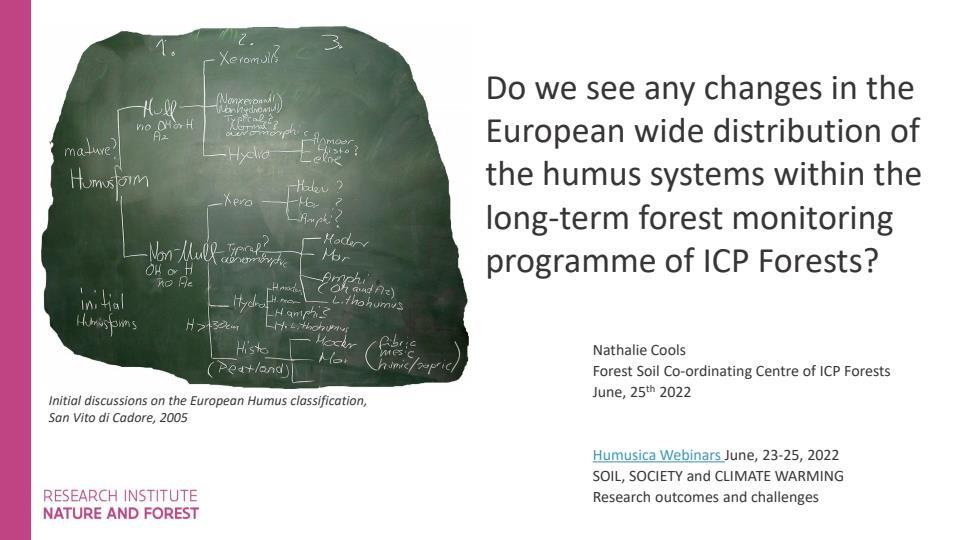 1. 2. 3.
Xeromull?
Mull
no OH or H
(Nonxeromull)
(Nonhydromull)
Typical?
Normal?
aeromorphic
Anmoor
Histo?
Hydro
mature?
Humusform
Moder ?
Xero
Mor ?
Amphi ?
Moder
Non-Mull
Typical?
aeromorphic
Mor
OH or H
Amphi
(OH and Az)
initial
Humusforms
H moder
Hydro
H mor
H amphi?
H. Lithohumus
Lithohumus
H > 30cm
Moder
Histo
(Peatland)
Mor
(fibric
mesic
humic/sapric)
Initial discussions on the European Humus classification,
San Vito di Cadore, 2005
RESEARCH INSTITUTE
NATURE AND FOREST
Do we see any changes in the
European wide distribution of
the humus systems within the
long-term forest monitoring
programme of ICP Forests?
Nathalie Cools
Forest Soil Co-ordinating Centre of ICP Forests
June, 25th 2022
Humusica Webinars June, 23-25, 2022
SOIL, SOCIETY and CLIMATE WARMING
Research outcomes and challenges